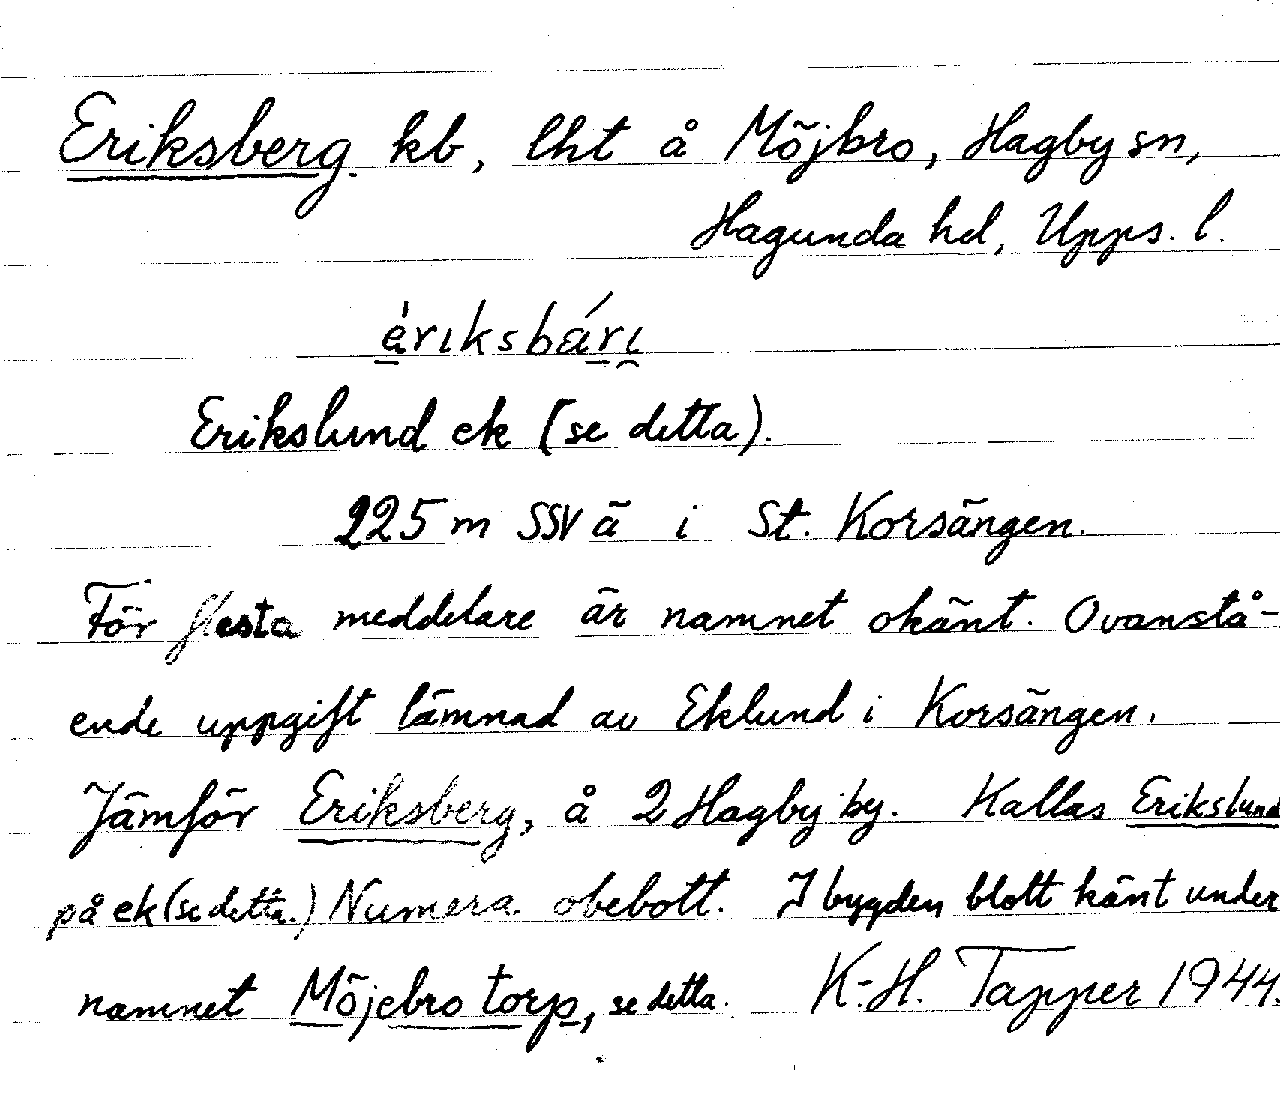 Eriksberg kb, lht å Möjbro, Hagby sn,
Hagunda hd, Upps. l.
èriksbárι
Erikslund ek (se detta).
225 m SSV ä i St. Korsängen.
För flesta meddelare är namnet okänt. Ovanstå-
ende uppgift lämnad av Eklund i Korsängen.
Jämför Eriksberg, å 2 Hagby by. Kallas Erikslund
på ek (se detta.) Numera obebott. I bygden blott känt under
namnet Möjebro torp, se detta. K.-H. Tapper 1944.